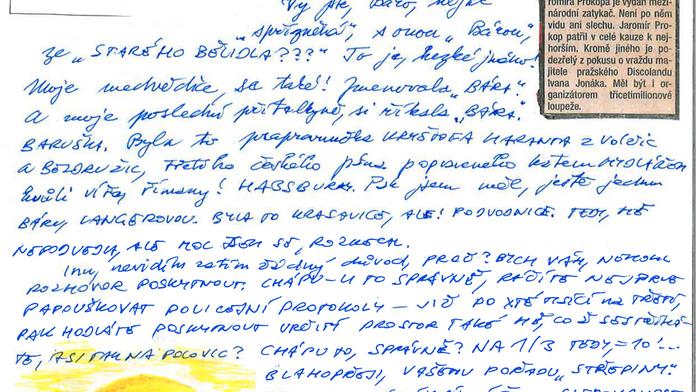 Vy jste, Báro, nejste
„spřízněná", s onou „Bárou",
ze „STARÉHO BĚLIDLA???" To je, hezké jméno!
Moje medvědice, se také! Jmenovala „BÁRA".
A moje poslední přítelkyně, si říkala „BÁRA"
BARUŠKA. Byla to prapravnučka KRYŠTOFA HARANTA z Volčic
A BEZDRUŽIC, třetího českého pána popraveného katem MYDLÁŘEM
kvůli HABSBURK. Pak jsem měl, ještě jednu
BÁRU LANGEROVOU. BYLA TO KRASAVICE, ALE! PODVODNICE. TEDY, MĚ
NEPODVEDLA, ALE MOC JSEM SE, ROZNECH.
Inu, nevidím zatím žádný důvod, PROČ? BYCH VÁM, NEMOHL
ROZHOVOR POSKYTNOUT. CHÁPU-LI TO SPRÁVNĚ, RÁČÍTE NEJPRVE
PAPOUŠKOVAT POLICEJNÍ PROTOKOLY – JIŽ PO na TŘETÍ,
PAK HODLÁTE POSKYTNOUT URČITÝ PROSTOR TAKÉ MĚ, COŽ
TE, ASI TAK NA POLOVIC? CHÁPU TO, SPRÁVNĚ? NA 1/3 TEDY = 10'...
BLAHOPŘEJI, VAŠEMU POŘADU, „STŘEPINY".
romíra Prokopa je vydán mezi-
národní zatykač. Není po něm
vidu ani slechu. Jaromír Pro-
kop patřil v celé kauze k nej-
horším. Kromě jiného je po-
dezřelý z pokusu o vraždu ma-
jitele pražského Discolandu
Ivana Jonáka. Měl být i
organizátorem třicetimilionové
loupeže.